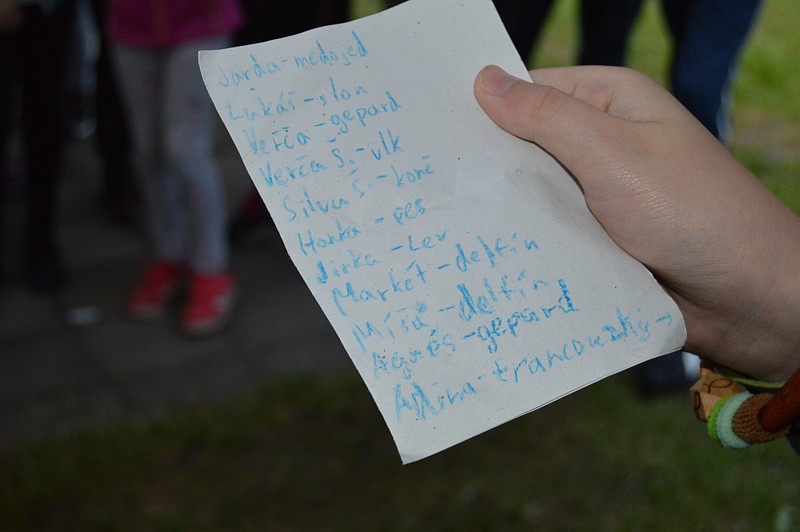 Jarda - medojed
Lukáš - slon
Verča - gepard
Verča Š. - vlk
Silva Š - koně
Honka - pes
Jirka - Lev
Markét - delfín
Míša - delfín
Agnes - gepard
Adina - francouzský →